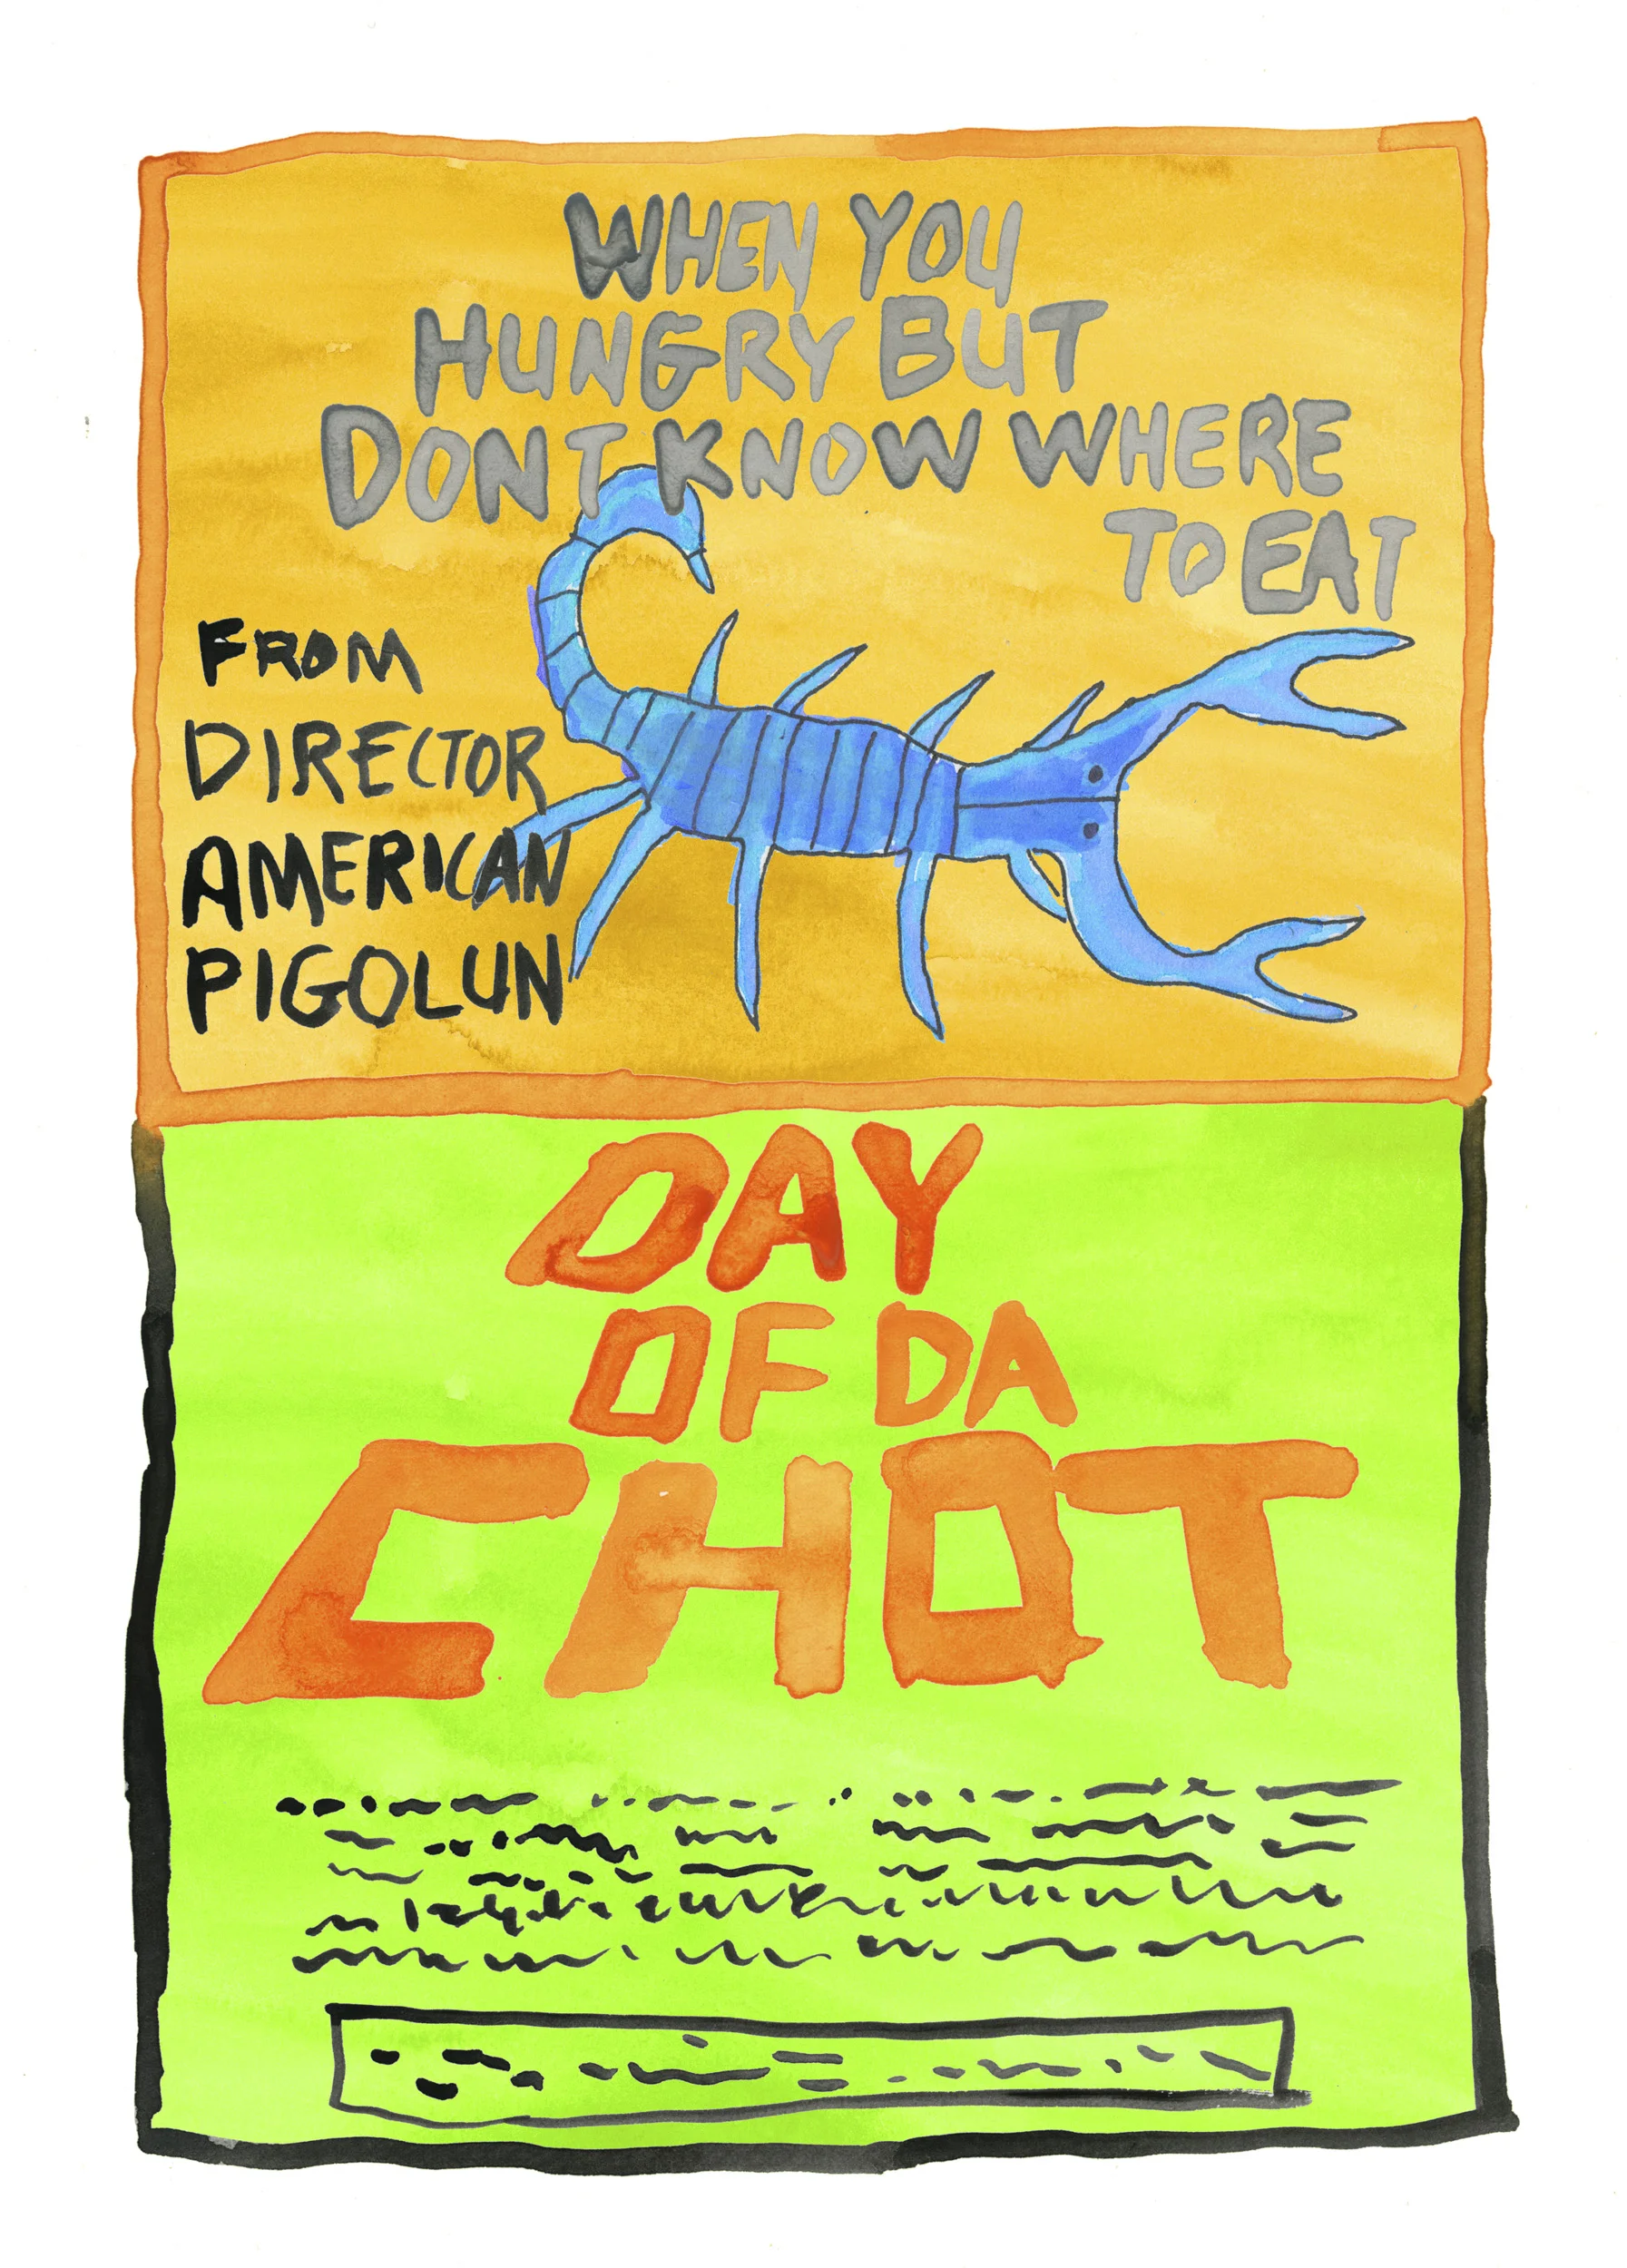 WHEN YOU
HUNGRY BUT
DONT KNOW WHERE
TO EAT
FROM
DIRECTOR
AMERICAN
PIGOLUN
DAY
OF DA
CHOT